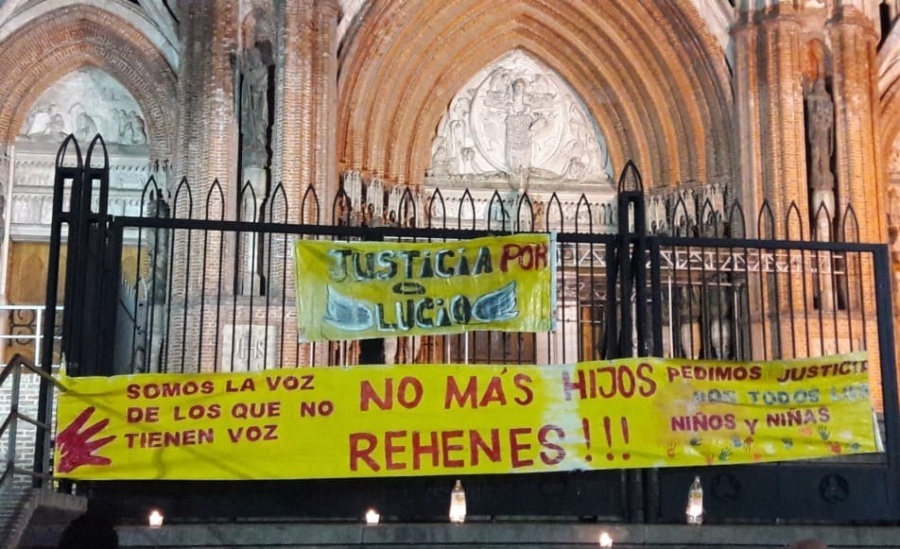 JUSTICIA POR
LUCIO
SOMOS LA VOZ
DE LOS QUE NO
TIENEN VOZ
NO MÁS HIJOS
REHENES!!!
PEDIMOS JUSTICIA
POR TODOS LOS
NIÑOS Y NIÑAS